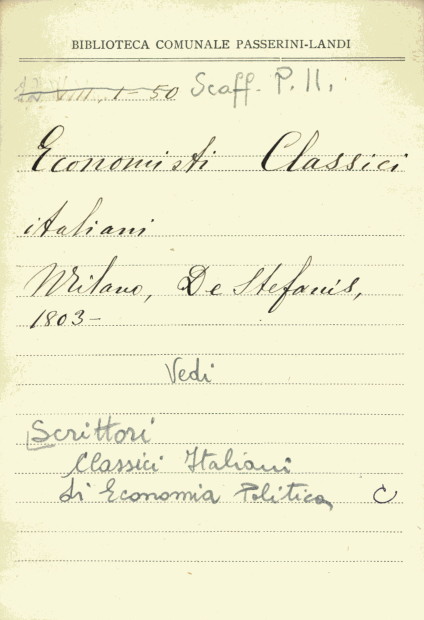 BIBLIOTECA COMUNALE PASSERINI-LANDI
VIII. 1-50 Scaff. P. 11.
Economisti Classici
italiani
Milano, De Stefanis,
1803-
Vedi
Scrittori
Classici Italiani
di Economia Politica